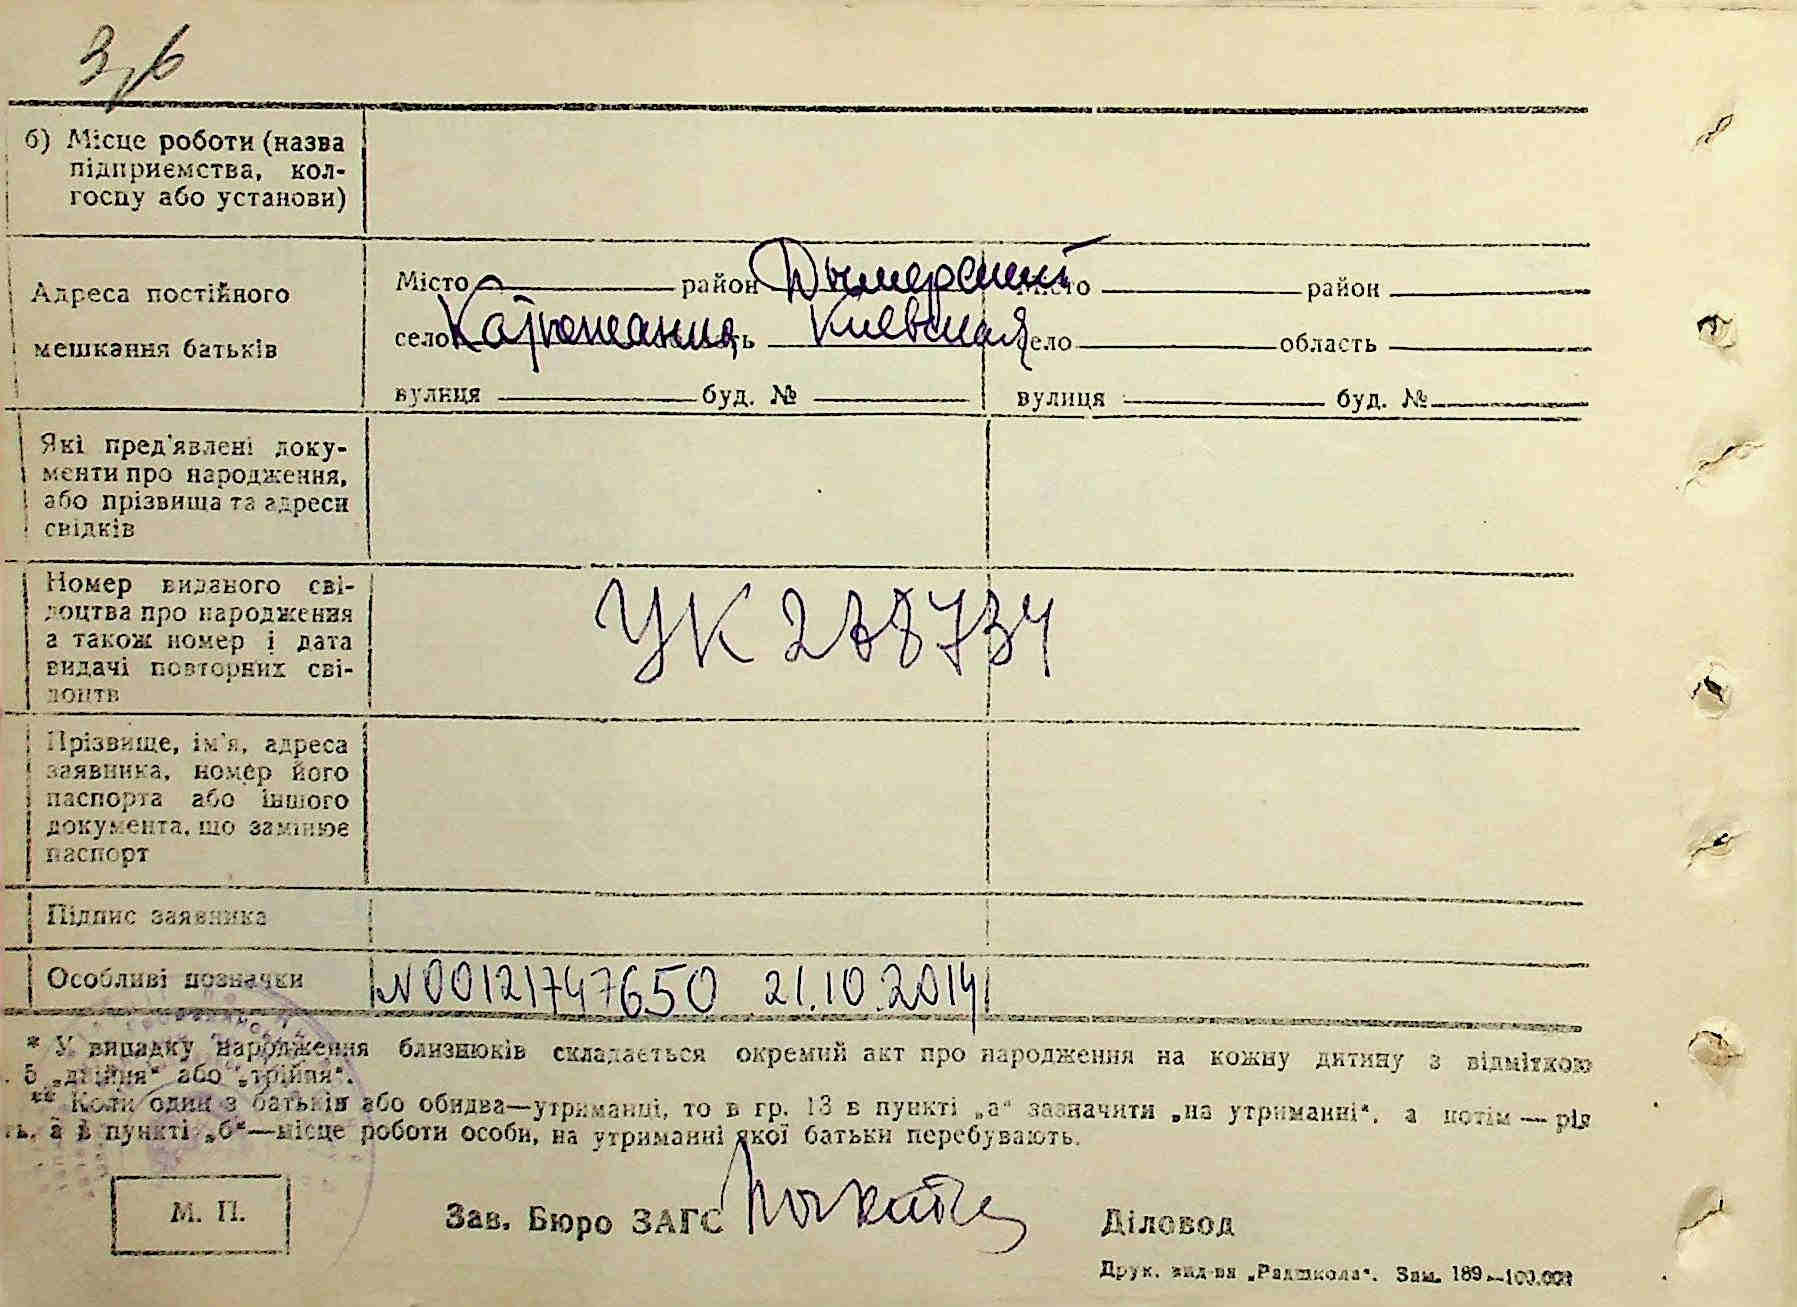 3/6
б) Місце роботи (назва
підприємства, кол-
госпу або установи)
Адреса постійного
мешкання батьків
Місто район Дымерский
село Катюжанка Киевская
вулиця буд. №
Місто район
село область
вулиця буд. №
Які пред'явлені доку-
менти про народження,
або прізвища та адреси
свідків
Номер виданого сві-
доцтва про народження
а також номер і дата
видачі повторних сві-
доцтв
УК 278734
Прізвище, ім'я, адреса
заявника, номер його
паспорта або іншого
документа, що замінює
паспорт
Підпис заявника
Особливі позначки
N00121747650 21.10.2014
* У випадку народження близнюків складається окремий акт про народження на кожну дитину з відміткою
. 5 „двійня“ або „трійня“.
** Коли один з батьків або обидва—утриманці, то в гр. 13 в пункті „а“ зазначити „на утриманні“, а потім — рід
ть, а в пункті „б“—місце роботи особи, на утриманні якої батьки перебувають.
М. П.
Зав. Бюро ЗАГС
Діловод
Друк. вид-ва „Радшкола“. Зам. 189—100.000